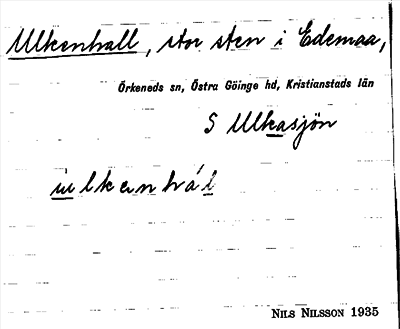 Ulkenhall, stor sten i Edemaa,
Örkeneds sn, Östra Göinge hd, Kristianstads län
S Ulkasjön
NILS NILSSON 1935